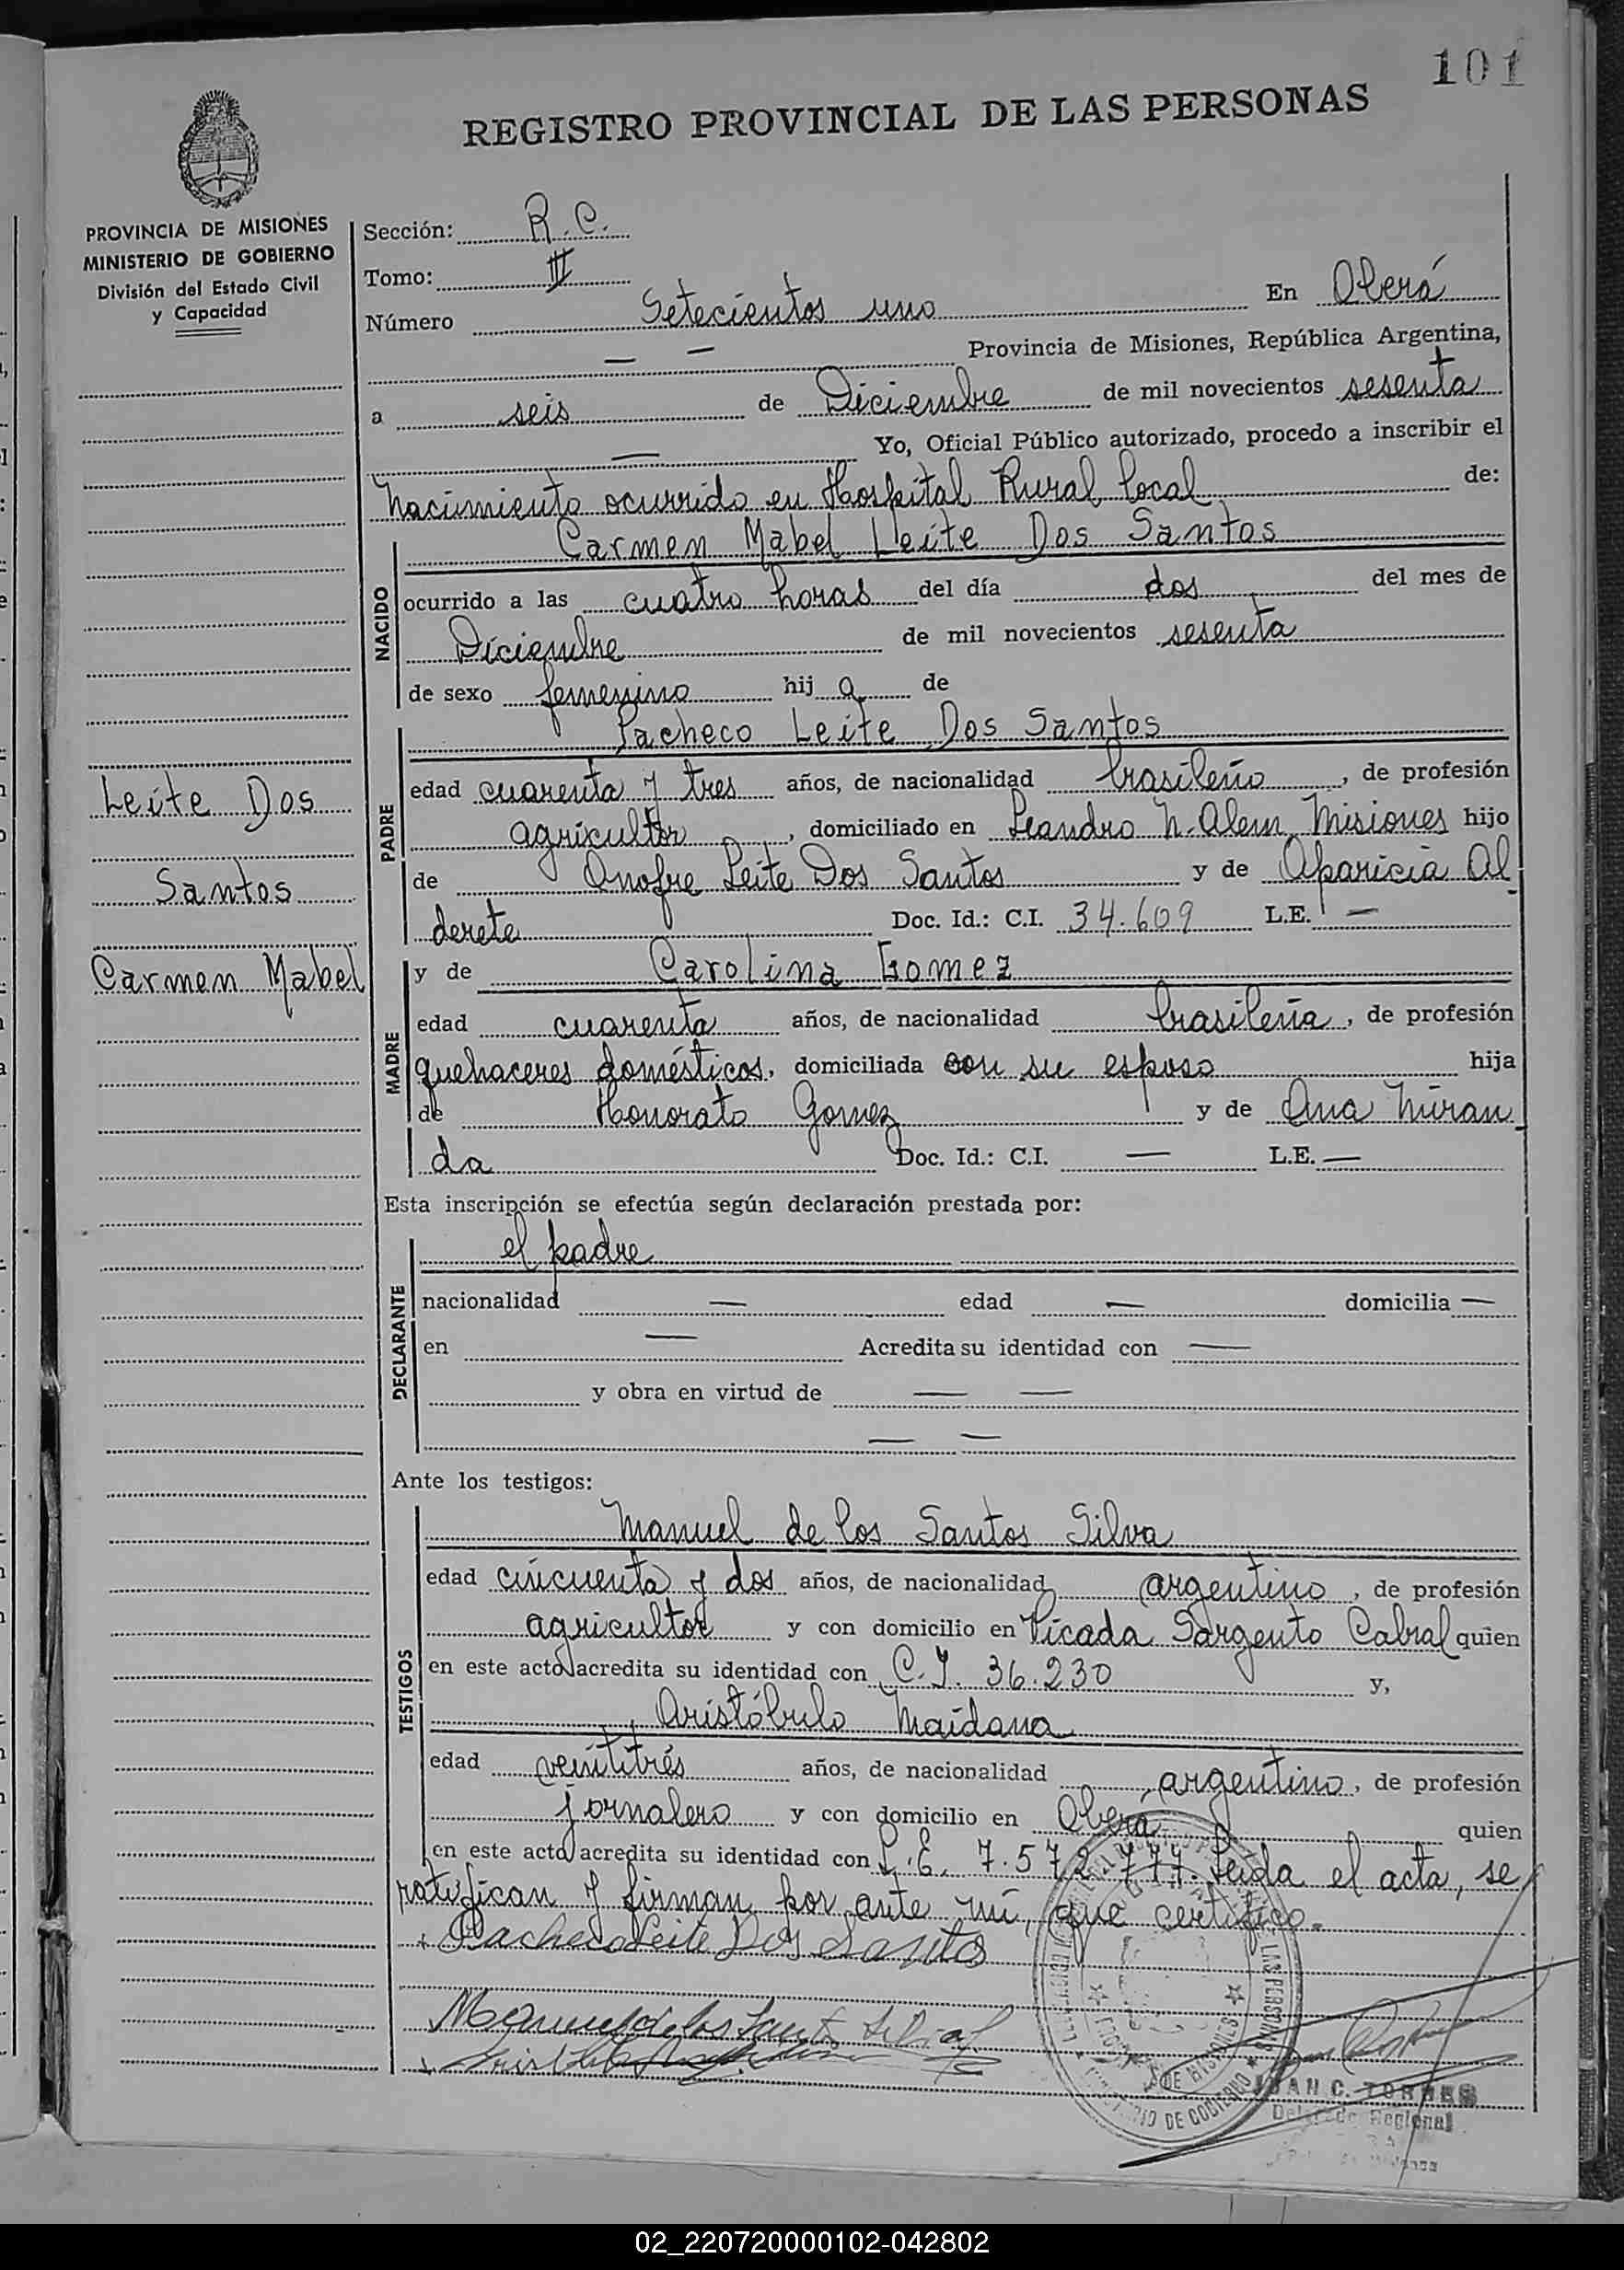 101
REGISTRO PROVINCIAL DE LAS PERSONAS
PROVINCIA DE MISIONES
MINISTERIO DE GOBIERNO
División del Estado Civil
y Capacidad
Leite Dos
Santos
Carmen Mabel
Sección: R.C.
Tomo: III
Número Setecientos uno En Oberá
— — Provincia de Misiones, República Argentina,
a seis de Diciembre de mil novecientos sesenta
— Yo, Oficial Público autorizado, procedo a inscribir el
nacimiento ocurrido en Hospital Rural local de:
NACIDO
Carmen Mabel Leite Dos Santos
ocurrido a las cuatro horas del día dos del mes de
Diciembre de mil novecientos sesenta
de sexo femenino hij a de
PADRE
Pacheco Leite Dos Santos
edad cuarenta y tres años, de nacionalidad brasileño, de profesión
agricultor, domiciliado en Leandro N. Alem Misiones hijo
de Onofre Leite Dos Santos y de Aparicia Al
derete Doc. Id.: C.I. 34.609 L.E. —
MADRE
y de Carolina Gomez
edad cuarenta años, de nacionalidad brasileña, de profesión
quehaceres domésticos, domiciliada con su esposo hija
de Honorato Gomez y de Ana Miran
da Doc. Id.: C.I. — L.E. —
Esta inscripción se efectúa según declaración prestada por:
DECLARANTE
el padre
nacionalidad — edad — domicilia —
en — Acredita su identidad con —
y obra en virtud de — —
— —
Ante los testigos:
TESTIGOS
Manuel de los Santos Silva
edad cincuenta y dos años, de nacionalidad argentino, de profesión
agricultor y con domicilio en Picada Sargento Cabral quien
en este acto acredita su identidad con C.I. 36.230 y,
Aristóbulo Maidana
edad veintitrés años, de nacionalidad argentino, de profesión
jornalero y con domicilio en Oberá quien
en este acto acredita su identidad con L.E. 7.572.777. Leida el acta, se
ratifican y firman por ante mí, que certifico.
Pacheco Leite Dos Santos
Manuel de los Santos Silva
JUAN C. TORRES
Delegado Regional
02_220720000102-042802